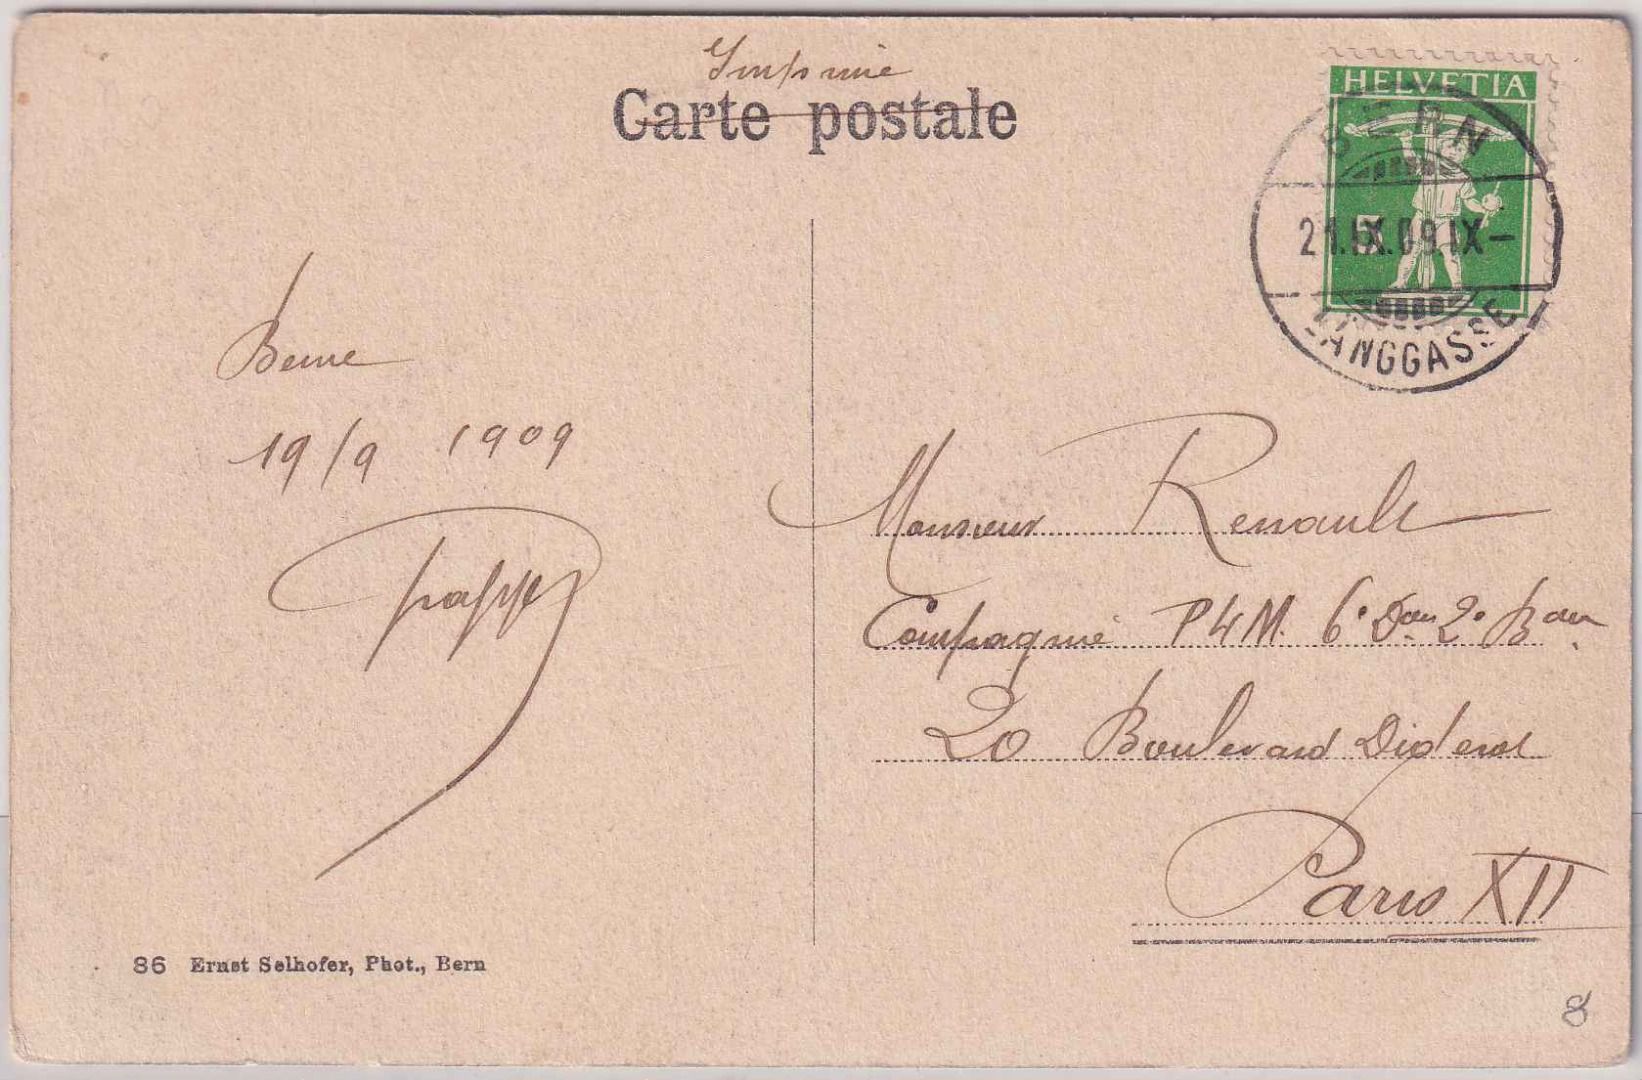 Imprimé
Carte postale
HELVETIA
5
BERN
21.IX.09.IX-
LÄNGGASSE
Berne
19/9 1909
Monsieur Renault
Compagnie P L M. 6e Don 2e Bau
20 Boulevard Diderot
Paris XII
86 Ernst Selhofer, Phot., Bern
8